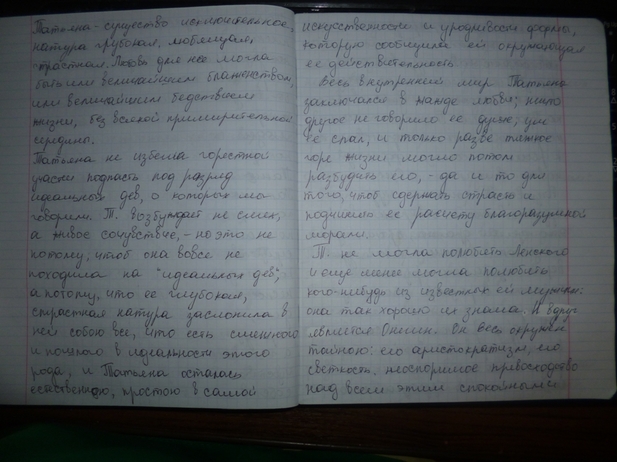 Татьяна - существо исключительное,
натура глубокая, любящая,
страстная. Любовь для нее могла
быть или величайшим блаженством,
или величайшим бедствием
жизни, без всякой примирительной
середины.
Татьяна не избегла горестной
участи подпасть под разряд
идеальных дев, о которых мы
говорили. Т. возбуждает не смех,
а живое сочувствие, - но это не
потому, чтоб она вовсе не
походила на "идеальных дев",
а потому, что ее глубокая,
страстная натура заслонила в
ней собою все, что есть смешного
и пошлого в идеальности этого
рода, и Татьяна осталась
естественною, простою в самой
искусственности и уродливости формы,
которую сообщила ей окружающая
ее действительность
Весь внутренний мир Татьяны
заключался в жажде любви; ничто
другое не говорило ее душе; ум
ее спал, и только разве тяжкое
горе жизни могло потом
разбудить его, - да и то для
того, чтоб сдержать страсть и
подчинить ее расчету благоразумной
морали.
Т. не могла полюбить Ленского
и еще менее могла полюбить
кого-нибудь из известных ей мужчин:
она так хорошо их знала. И вдруг
является Онегин. Он весь окружен
тайною: его аристократизм, его
светкость, неоспоримое превосходство
над всем этим спокойным и